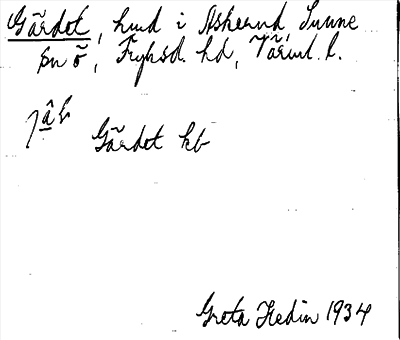 Gärdet, hmd i Askersud, Sunne
sn ö, Fryksd. hd, Värml. l.
jâL
Gärdet kb
Greta Hedin 1934